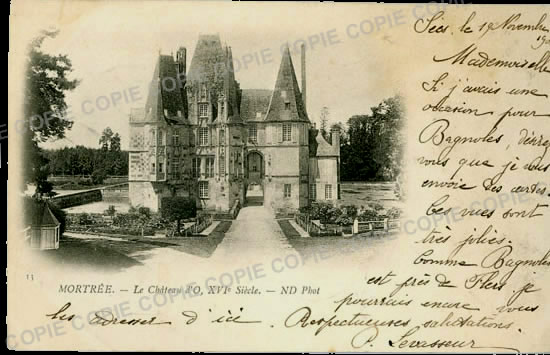 Sées, le 19 Novembre
190
Mademoiselle
Si j'avais une
occasion pour
Bagnoles, désirez
vous que je vous
envoie des cartes
les vues sont
très jolies.
Comme Bagnoles
est près de Flers, je
pourrais encore vous
les adresser d'ici. Respectueuses salutations.
P. Levasseur
13
MORTRÉE. — Le Château d'O, XVIe Siècle. — ND Phot
COPIE COPIE COPIE COPIE COPIE